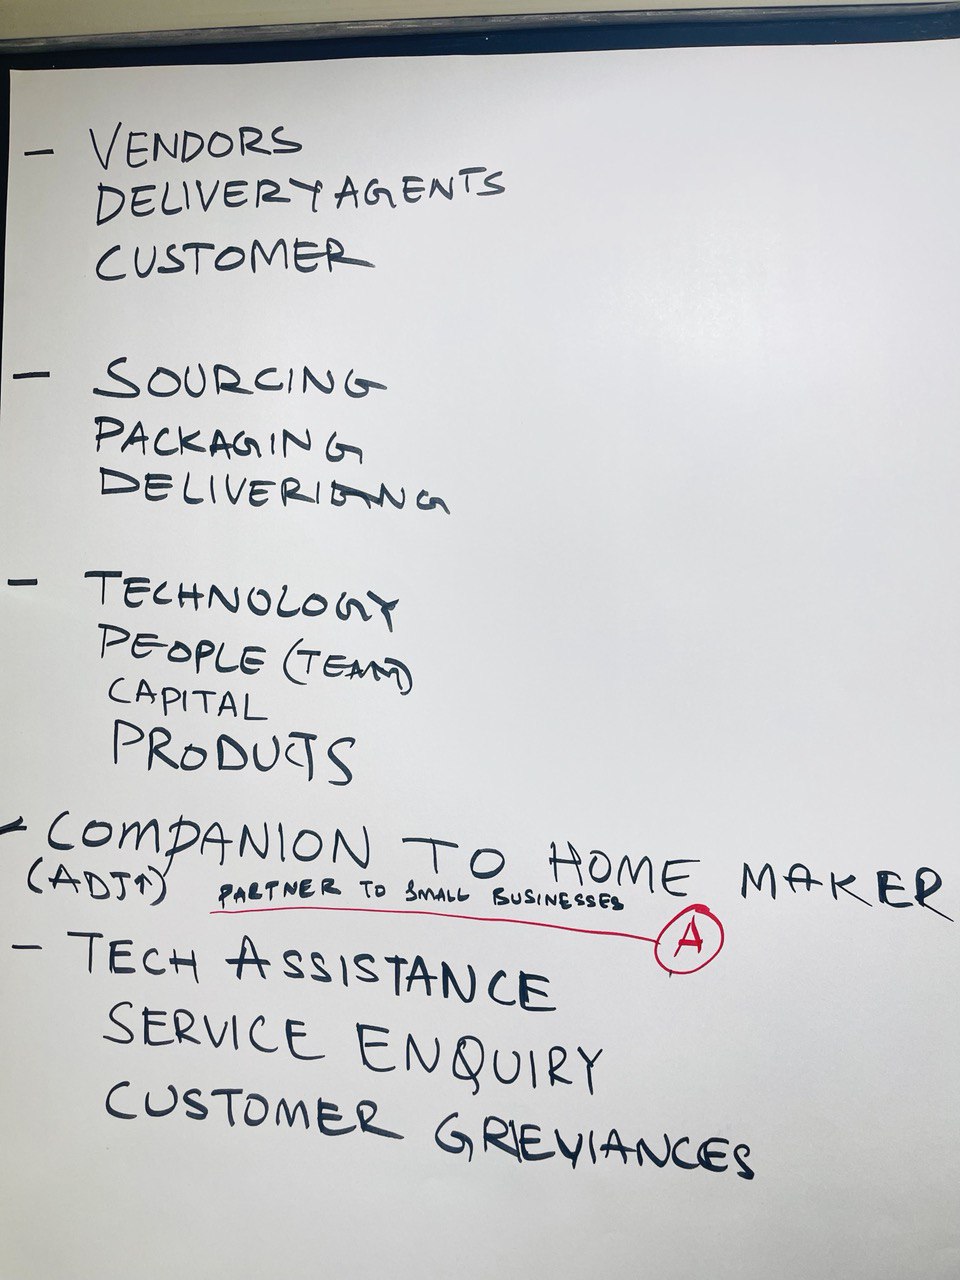 - VENDORS
DELIVERY AGENTS
CUSTOMER
- SOURCING
PACKAGING
DELIVERING
- TECHNOLOGY
PEOPLE (TEAM)
CAPITAL
PRODUCTS
- COMPANION TO HOME MAKER
(ADJ↑) PARTNER TO SMALL BUSINESSES
A
- TECH ASSISTANCE
SERVICE ENQUIRY
CUSTOMER GRIEVIANCES